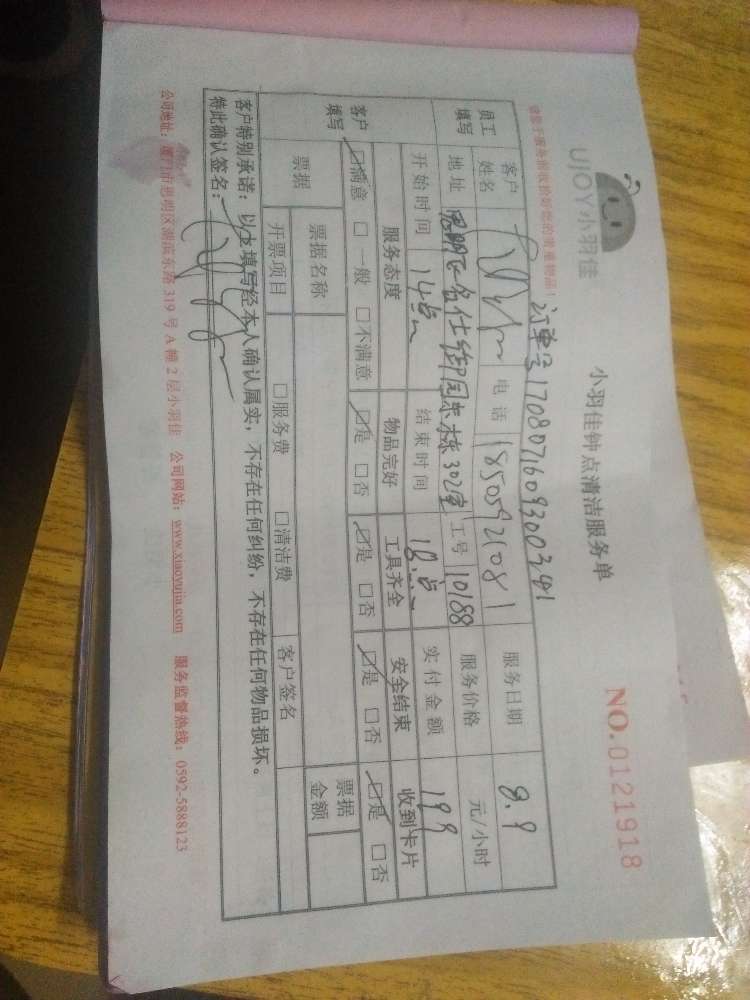 UJOY小羽佳
小羽佳钟点清洁服务单
NO.0121918
订单号170807160930034
员工填写
客户姓名
电话 1850921081
服务日期 8.9
地址 思明区名仕御园东栋302室
工号 10188
服务价格 元/小时
开始时间 14点
结束时间 18点
实付金额 199
客户填写
服务态度 物品完好 工具齐全 安全结束 收到卡片
☑满意 □一般 □不满意 ☑是 □否 ☑是 □否 ☑是 □否 ☑是 □否
票据
票据名称
票据金额
开票项目 □服务费 □清洁费 客户签名
客户特别承诺：以上填写经本人确认属实，不存在任何纠纷，不存在任何物品损坏。
特此确认签名：
公司地址：厦门市思明区湖滨东路 319 号 A 幢 2 层小羽佳 公司网站：www.xiaoyujia.com 服务监督热线：0592-5888123